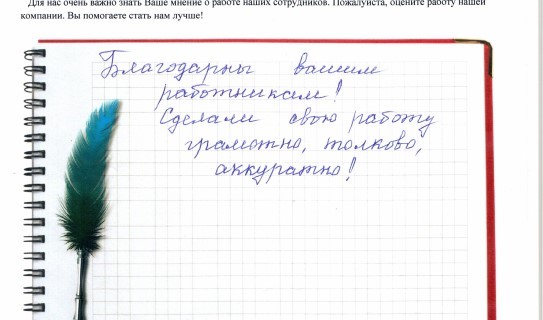 Для нас очень важно знать Ваше мнение о работе наших сотрудников. Пожалуйста, оцените работу нашей
компании. Вы помогаете стать нам лучше!
Благодарны вашим
работникам!
Сделали свою работу
грамотно, толково,
аккуратно!